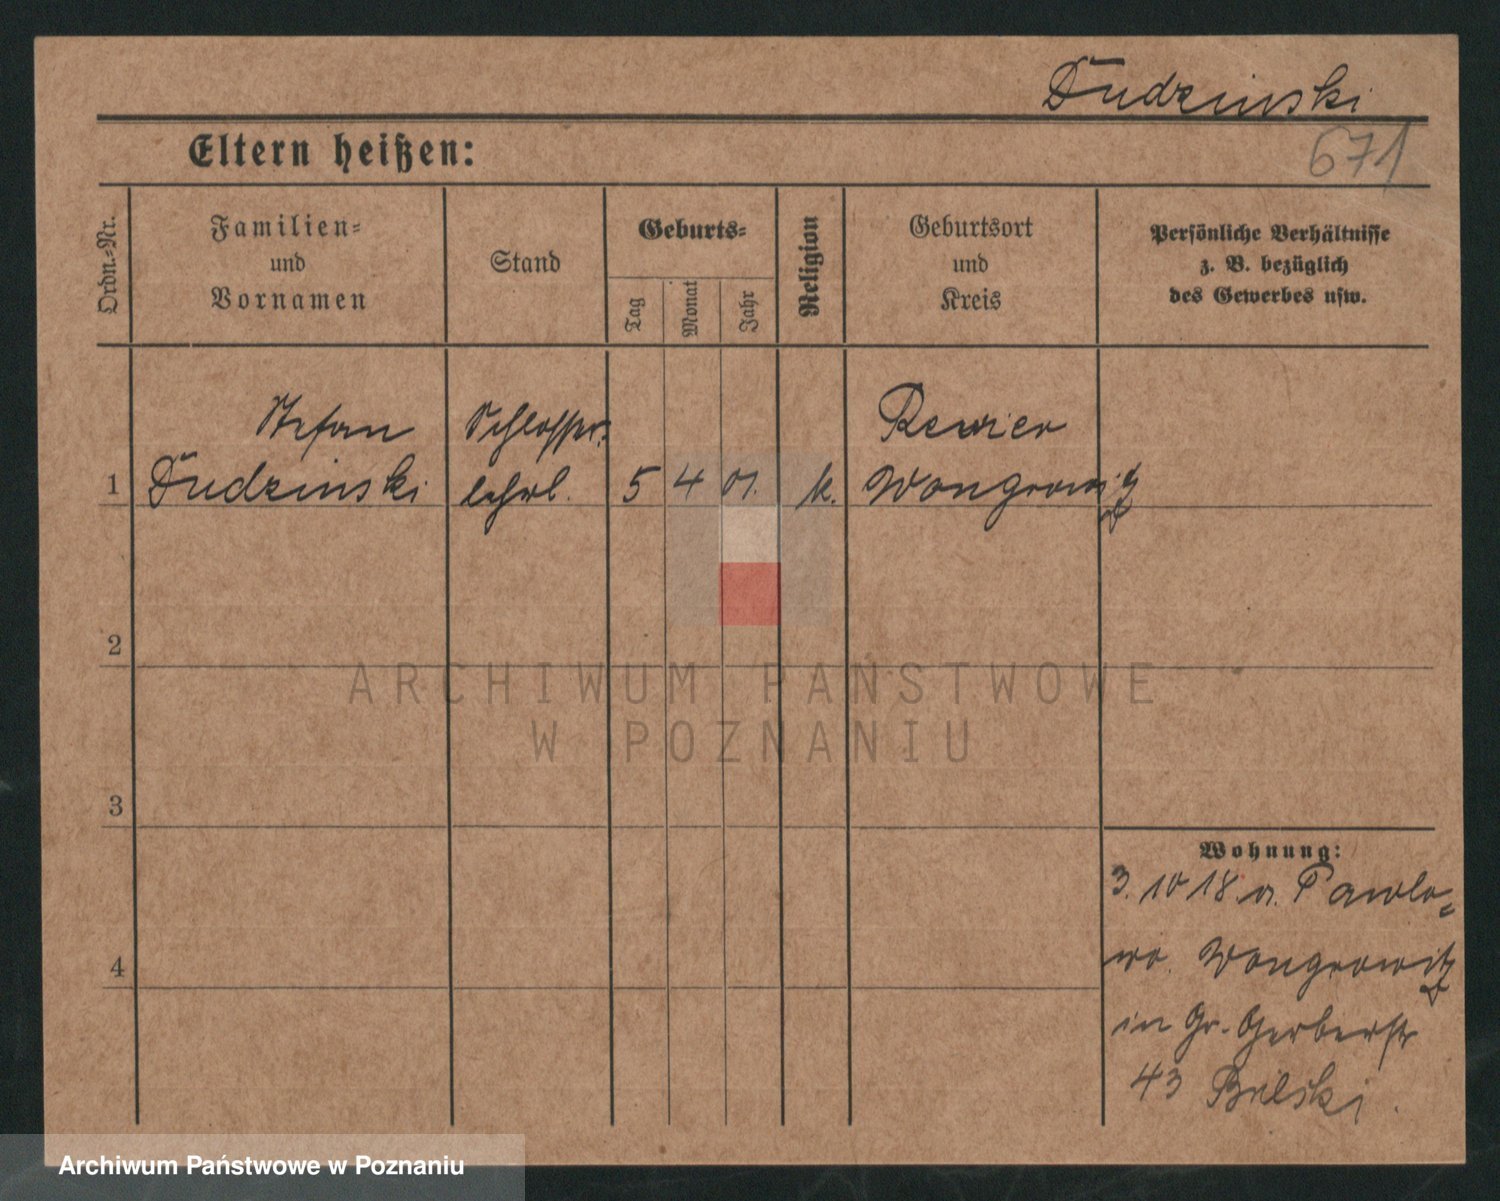 Dudzinski
Eltern heißen:
671
Ordn.-Nr.
Familien-
und
Vornamen
Stand
Geburts-
Tag
Monat
Jahr
Religion
Geburtsort
und
Kreis
Persönliche Verhältnisse
z. B. bezüglich
des Gewerbes usw.
1
Stefan
Dudzinski
Schlosser-
lehrl.
5
4
01.
k.
Revier
Wongrowitz
2
ARCHIWUM PAŃSTWOWE
W POZNANIU
3
Wohnung:
3. 10 18. a. Pawlo-
wo. Wongrowitz
4
in Gr. Gerberstr
43 Bilski.
Archiwum Państwowe w Poznaniu